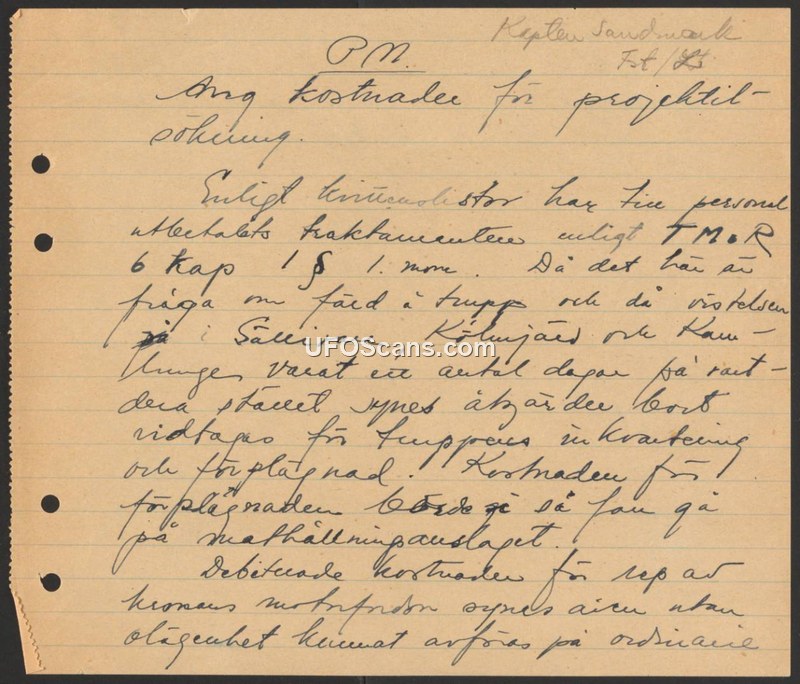 Kapten Sandmark
Fst/
P.M.
Ang kostnader för projektil-
sökning.
Enligt har till personal
utbetalats traktamenten enligt TMoR
6 kap 1 § 1. mom. Då det här är
fråga om färd å trupp och då vistelsen
i Kölmjärv och Kam-
lunge varat ett antal dagar på vart-
dera stället synes åtgärder bort
vidtagas för truppens inkvartering
och förplägnad. Kostnaden för
förplägnaden borde i så fall gå
på mathållningsanslaget.
Debiterade kostnader för rep av
kronans motorfordon synes även utan
olägenhet kunnat avföras på ordinarie
UFOScans.com